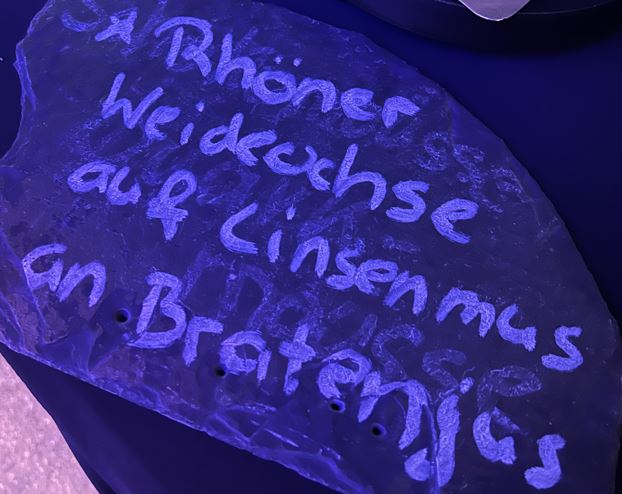 * Rhöner
Weideochse
auf Linsenmus
an Bratenjus